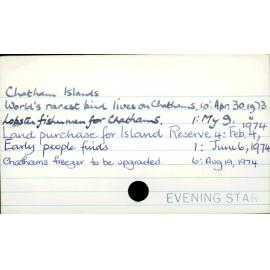 Chatham Islands
World's rarest bird lives on Chathams, 10: Apr. 30, 1973
Lobster fishermen for Chathams. 1: My 9, "
Land purchase for Island Reserve 4: Feb. 4, 1974
Early people finds 1: June 6, 1974
Chathams freezer to be upgraded 6: Aug 19, 1974
EVENING STAR